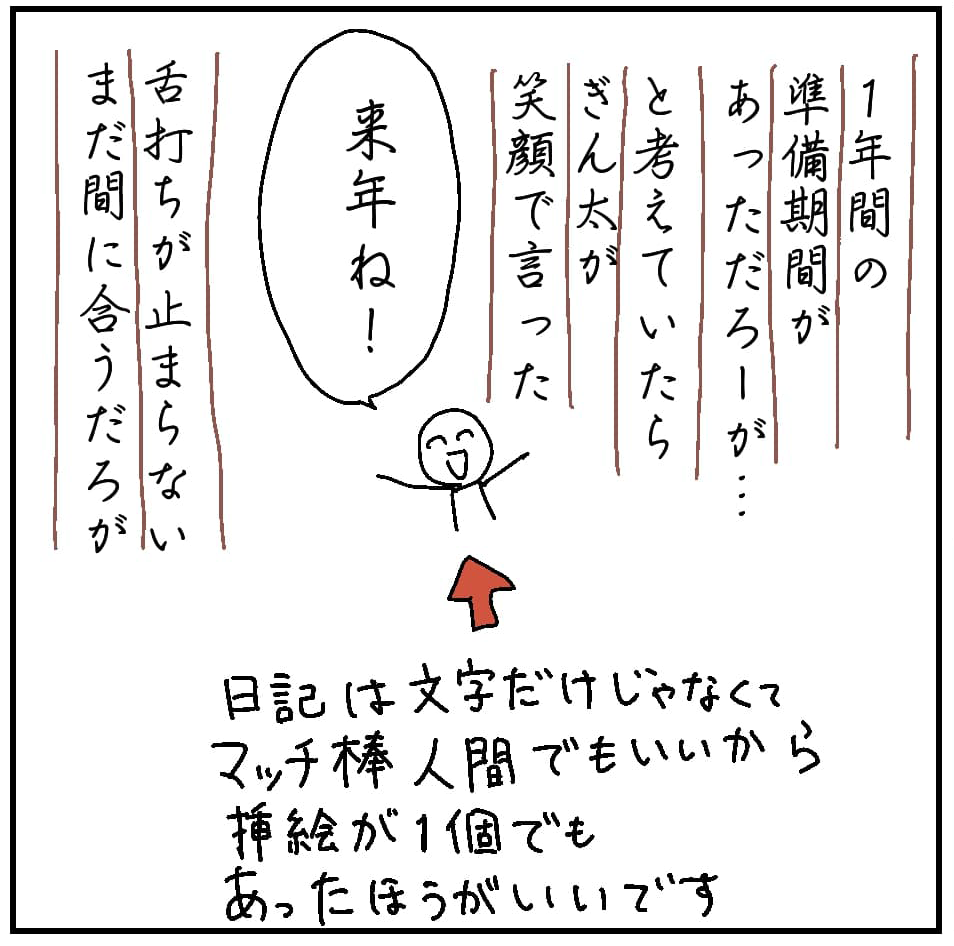 1年間の
準備期間が
あっただろーが…
と考えていたら
ぎん太が
笑顔で言った
来年ね!
舌打ちが止まらない
まだ間に合うだろが
日記は文字だけじゃなくて
マッチ棒人間でもいいから
挿絵が1個でも
あったほうがいいです